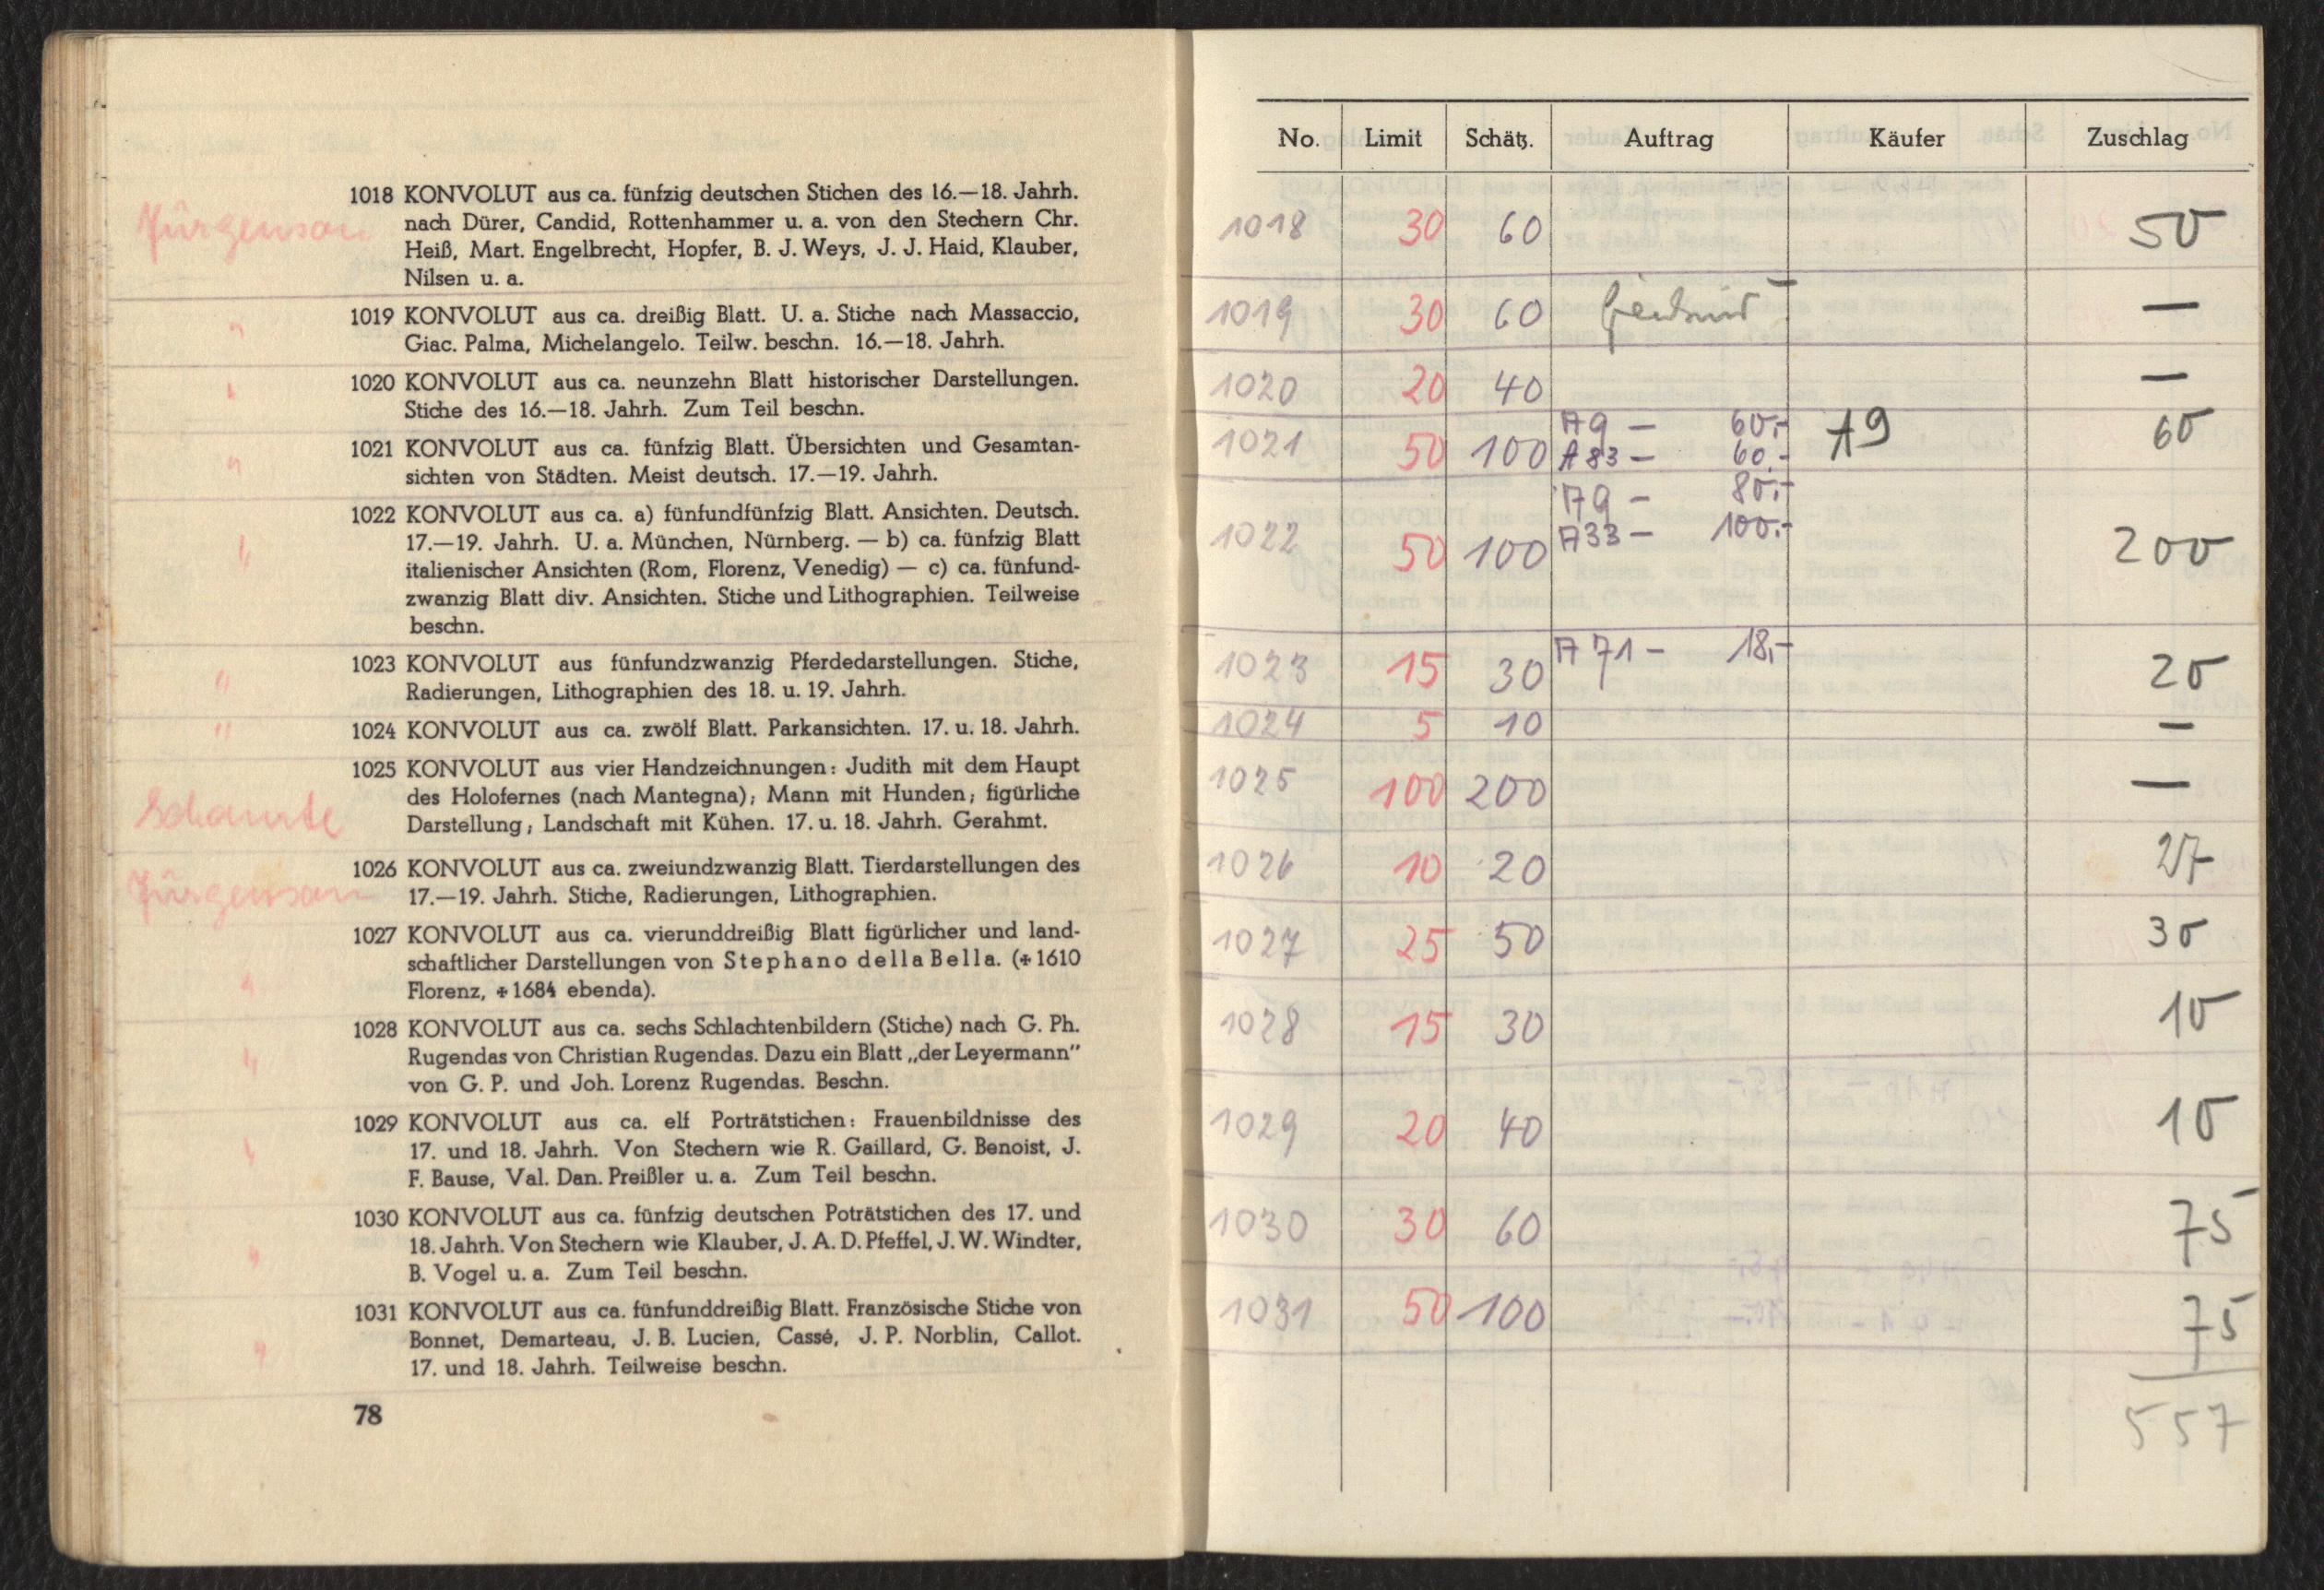 1018 KONVOLUT aus ca. fünfzig deutschen Stichen des 16.—18. Jahrh.
Jürgenson
nach Dürer, Candid, Rottenhammer u. a. von den Stechern Chr.
Heiß, Mart. Engelbrecht, Hopfer, B. J. Weys, J. J. Haid, Klauber,
Nilsen u. a.
1019 KONVOLUT aus ca. dreißig Blatt. U. a. Stiche nach Massaccio,
" Giac. Palma, Michelangelo. Teilw. beschn. 16.—18. Jahrh.
1020 KONVOLUT aus ca. neunzehn Blatt historischer Darstellungen.
" Stiche des 16.—18. Jahrh. Zum Teil beschn.
1021 KONVOLUT aus ca. fünfzig Blatt. Übersichten und Gesamtan-
" sichten von Städten. Meist deutsch. 17.—19. Jahrh.
1022 KONVOLUT aus ca. a) fünfundfünfzig Blatt. Ansichten. Deutsch.
" 17.—19. Jahrh. U. a. München, Nürnberg. — b) ca. fünfzig Blatt
italienischer Ansichten (Rom, Florenz, Venedig) — c) ca. fünfund-
zwanzig Blatt div. Ansichten. Stiche und Lithographien. Teilweise
beschn.
1023 KONVOLUT aus fünfundzwanzig Pferdedarstellungen. Stiche,
" Radierungen, Lithographien des 18. u. 19. Jahrh.
" 1024 KONVOLUT aus ca. zwölf Blatt. Parkansichten. 17. u. 18. Jahrh.
1025 KONVOLUT aus vier Handzeichnungen: Judith mit dem Haupt
des Holofernes (nach Mantegna); Mann mit Hunden; figürliche
Darstellung; Landschaft mit Kühen. 17. u. 18. Jahrh. Gerahmt.
1026 KONVOLUT aus ca. zweiundzwanzig Blatt. Tierdarstellungen des
Jürgenson
17.—19. Jahrh. Stiche, Radierungen, Lithographien.
1027 KONVOLUT aus ca. vierunddreißig Blatt figürlicher und land-
schaftlicher Darstellungen von Stephano della Bella. (* 1610
" Florenz, + 1684 ebenda).
1028 KONVOLUT aus ca. sechs Schlachtenbildern (Stiche) nach G. Ph.
" Rugendas von Christian Rugendas. Dazu ein Blatt „der Leyermann"
von G. P. und Joh. Lorenz Rugendas. Beschn.
1029 KONVOLUT aus ca. elf Porträtstichen: Frauenbildnisse des
" 17. und 18. Jahrh. Von Stechern wie R. Gaillard, G. Benoist, J.
F. Bause, Val. Dan. Preißler u. a. Zum Teil beschn.
1030 KONVOLUT aus ca. fünfzig deutschen Poträtstichen des 17. und
" 18. Jahrh. Von Stechern wie Klauber, J. A. D. Pfeffel, J. W. Windter,
B. Vogel u. a. Zum Teil beschn.
1031 KONVOLUT aus ca. fünfunddreißig Blatt. Französische Stiche von
" Bonnet, Demarteau, J. B. Lucien, Cassé, J. P. Norblin, Callot.
17. und 18. Jahrh. Teilweise beschn.
78
No. Limit Schätz. Auftrag Käufer Zuschlag
1018 30 60 50
1019 30 60 —
1020 20 40 —
1021 50 100 A9 — 60,- A9 60
A83 — 60.-
1022 50 100 A9 — 80,- 200
A33 — 100.-
1023 15 30 A71 — 18,- 20
1024 5 10 —
1025 100 200 —
1026 10 20 27
1027 25 50 30
1028 15 30 10
1029 20 40 10
1030 30 60 75
1031 50 100 75
557